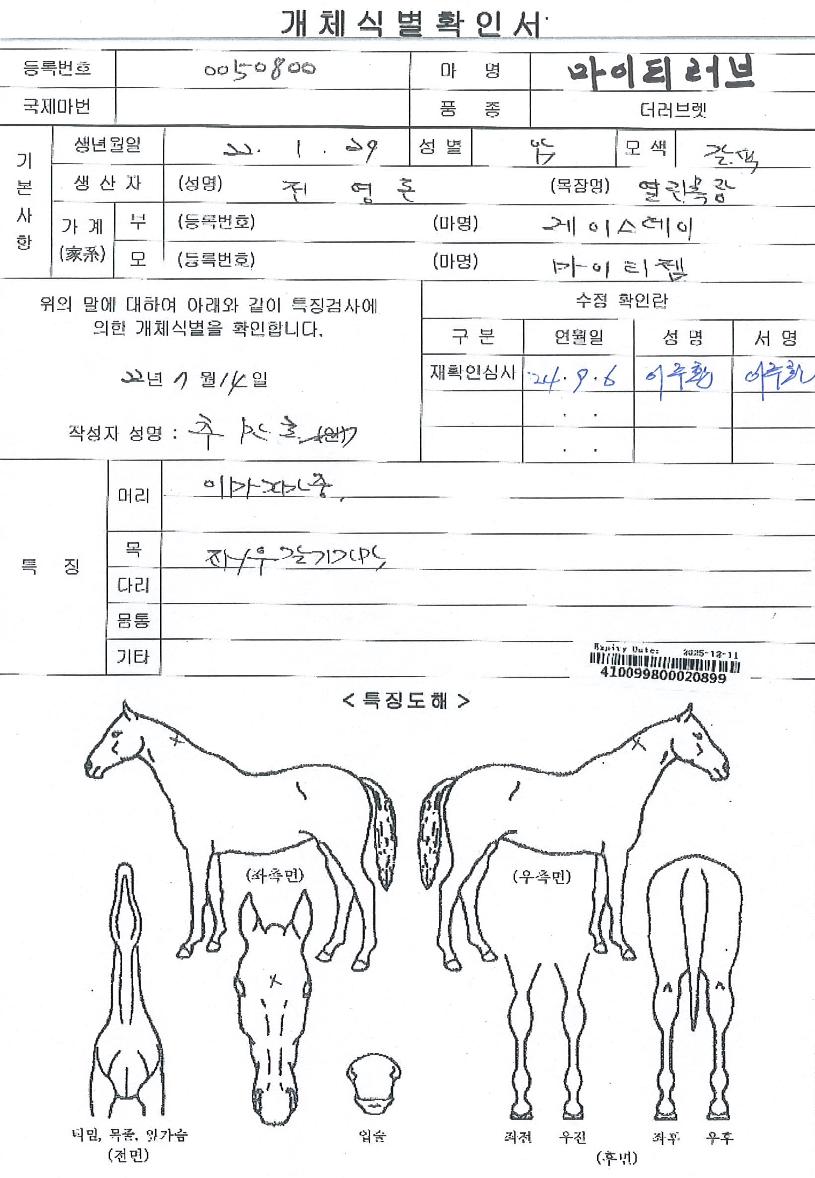 개체식별확인서
등록번호 0050800 마 명 마이티러브
국제마번 품 종 더러브렛
기본사항
생년월일 22. 1. 29 성 별 암 모 색 갈색
생 산 자 (성명) 전 영 (목장명) 열린목장
가 계 (家系) 부 (등록번호) (마명) 케이스데이
모 (등록번호) (마명) 마이티젬
위의 말에 대하여 아래와 같이 특징검사에
의한 개체식별을 확인합니다.
22년 7월 14일
작성자 성명 : (인)
수정 확인란
구 분 연월일 성 명 서 명
재확인심사 '24. 9. 6 이주환 이주환
. .
. .
특 징
머리 이마
목 좌 우
다리
몸통
기타
Expiry Date: 2025-12-11
410099800020899
< 특징도해 >
(좌측면) (우측면)
턱밑, 목줄, 앞가슴
(전면)
입술
좌전 우전 좌후 우후
(후면)